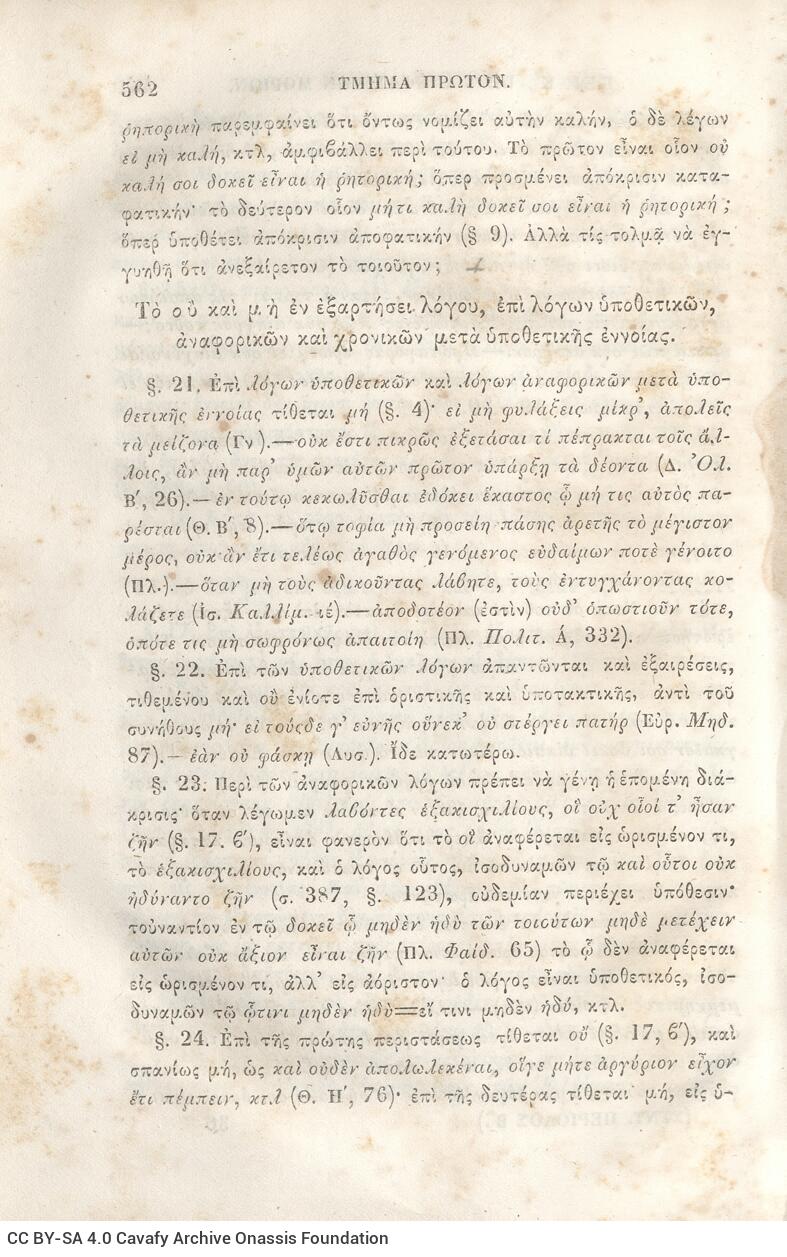 562
ΤΜΗΜΑ ΠΡΩΤΟΝ.
ῥηπορικὴ παρεμφαίνει ὅτι ὄντως νομίζει αὐτὴν καλήν, ὁ δὲ λέγων
εἰ μὴ καλή, κτλ, ἀμφιβάλλει περὶ τούτου. Τὸ πρῶτον εἶναι οἷον οὐ
καλή σοι δοκεῖ εἶναι ἡ ῥητορική; ὅπερ προσμένει ἀπόκρισιν κατα-
φατικήν· τὸ δεύτερον οἷον μήτι καλὴ δοκεῖ σοι εἶναι ἡ ῥητορική;
ὅπερ ὑποθέτει ἀπόκρισιν ἀποφατικήν (§ 9). Ἀλλὰ τίς τολμᾷ νὰ ἐγ-
γυηθῇ ὅτι ἀνεξαίρετον τὸ τοιοῦτον;
Τὸ οὐ καὶ μὴ ἐν ἐξαρτήσει λόγου, ἐπὶ λόγων ὑποθετικῶν,
ἀναφορικῶν καὶ χρονικῶν μετὰ ὑποθετικῆς ἐννοίας.
§. 21. Ἐπὶ λόγων ὑποθετικῶν καὶ λόγων ἀναφορικῶν μετὰ ὑπο-
θετικῆς ἐννοίας τίθεται μή (§. 4)· εἰ μὴ φυλάξεις μίκρ', ἀπολεῖς
τὰ μείζονα (Γν).—οὐκ ἔστι πικρῶς ἐξετάσαι τί πέπρακται τοῖς ἄλ-
λοις, ἂν μὴ παρ' ὑμῶν αὐτῶν πρῶτον ὑπάρξῃ τὰ δέοντα (Δ. Ὀλ.
Β', 26).—ἐν τούτῳ κεκωλῦσθαι ἐδόκει ἕκαστος ᾧ μή τις αὐτὸς πα-
ρέσται (Θ. Β', 8).—ὅτῳ τοφία μὴ προσείη πάσης ἀρετῆς τὸ μέγιστον
μέρος, οὐκ ἂν ἔτι τελέως ἀγαθὸς γενόμενος εὐδαίμων ποτὲ γένοιτο
(Πλ.).—ὅταν μὴ τοὺς ἀδικοῦντας λάβητε, τοὺς ἐντυγχάνοντας κο-
λάζετε (Ἰσ. Καλλίμ. ιέ).—ἀποδοτέον (ἐστὶν) οὐδ' ὁπωστιοῦν τότε,
ὁπότε τις μὴ σωφρόνως ἀπαιτοίη (Πλ. Πολιτ. Ά, 332).
§. 22. Ἐπὶ τῶν ὑποθετικῶν λόγων ἀπαντῶνται καὶ ἐξαιρέσεις,
τιθεμένου καὶ οὐ ἐνίοτε ἐπὶ ὁριστικῆς καὶ ὑποτακτικῆς, ἀντὶ τοῦ
συνήθους μή· εἰ τούσδε γ' εὐνῆς οὕνεκ' οὐ στέργει πατήρ (Εὐρ. Μηδ.
87).—ἐὰν οὐ φάσκῃ (Λυσ.). Ἴδε κατωτέρω.
§. 23. Περὶ τῶν ἀναφορικῶν λόγων πρέπει νὰ γένῃ ἡ ἑπομένη διά-
κρισις· ὅταν λέγωμεν λαβόντες ἑξακισχιλίους, οἳ οὐχ οἷοί τ' ἦσαν
ζῆν (§. 17. ϐ'), εἶναι φανερὸν ὅτι τὸ οἳ ἀναφέρεται εἰς ὡρισμένον τι,
τὸ ἑξακισχιλίους, καὶ ὁ λόγος οὗτος, ἰσοδυναμῶν τῷ καὶ οὗτοι οὐκ
ἠδύναντο ζῆν (σ. 387, §. 123), οὐδεμίαν περιέχει ὑπόθεσιν·
τοὐναντίον ἐν τῷ δοκεῖ ᾧ μηδὲν ἡδὺ τῶν τοιούτων μηδὲ μετέχειν
αὐτῶν οὐκ ἄξιον εἶναι ζῆν (Πλ. Φαίδ. 65) τὸ ᾧ δὲν ἀναφέρεται
εἰς ὡρισμένον τι, ἀλλ' εἰς ἀόριστον· ὁ λόγος εἶναι ὑποθετικός, ἰσο-
δυναμῶν τῷ ᾧτινι μηδὲν ἡδὺ=εἴ τινι μηδὲν ἡδύ, κτλ.
§. 24. Ἐπὶ τῆς πρώτης περιστάσεως τίθεται οὐ (§. 17, ϐ'), καὶ
σπανίως μή, ὡς καὶ οὐδὲν ἀπολωλεκέναι, οἵγε μήτε ἀργύριον εἶχον
ἔτι πέμπειν, κτλ (Θ. Η', 76)· ἐπὶ τῆς δευτέρας τίθεται μή, εἰς ὑ-
CC BY-SA 4.0 Cavafy Archive Onassis Foundation